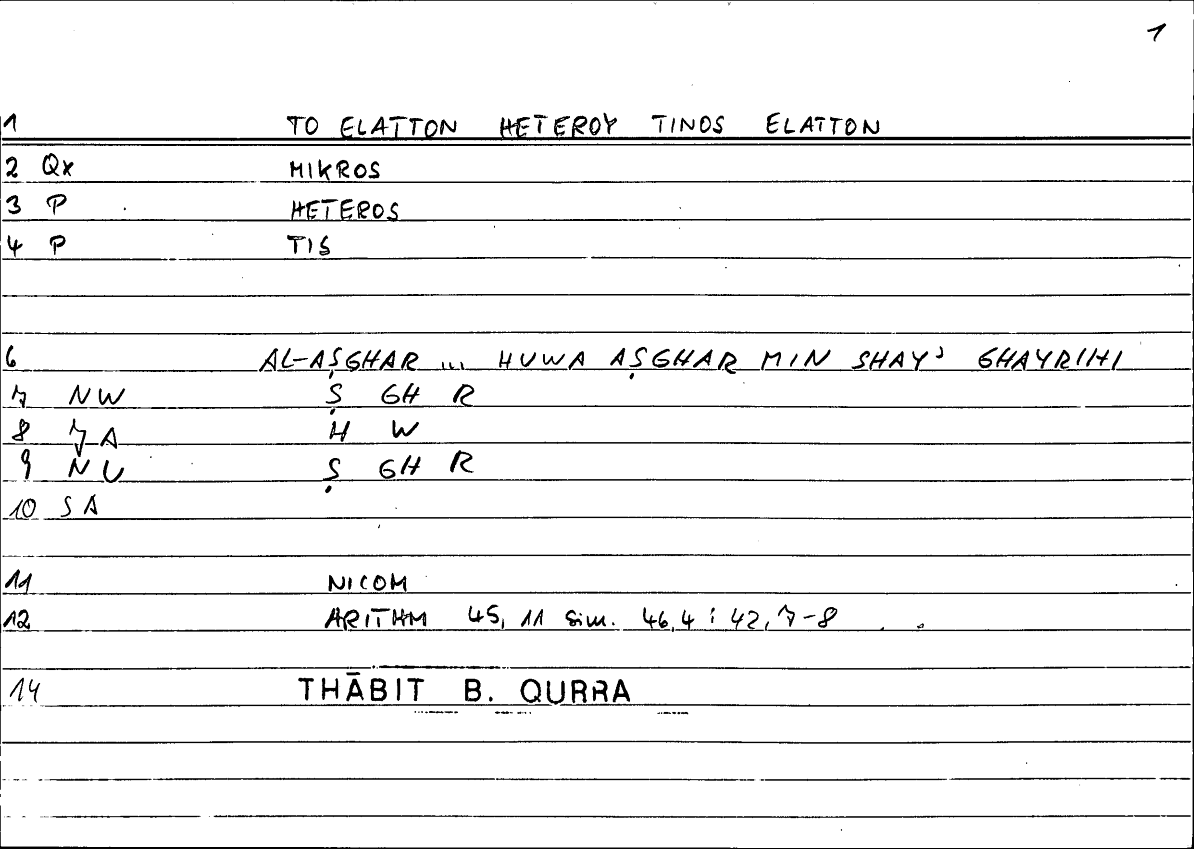 1
1 TO ELATTON HETEROY TINOS ELATTON
2 Qx MIKROS
3 P HETEROS
4 P TIS
6 AL-AṢGHAR ... HUWA AṢGHAR MIN SHAYʾ GHAYRIHI
7 NW Ṣ GH R
8 7A H W
9 NU Ṣ GH R
10 SA
11 NICOM
12 ARITHM 45, 11 sim. 46,4; 42,7-8
14 THĀBIT B. QURRA